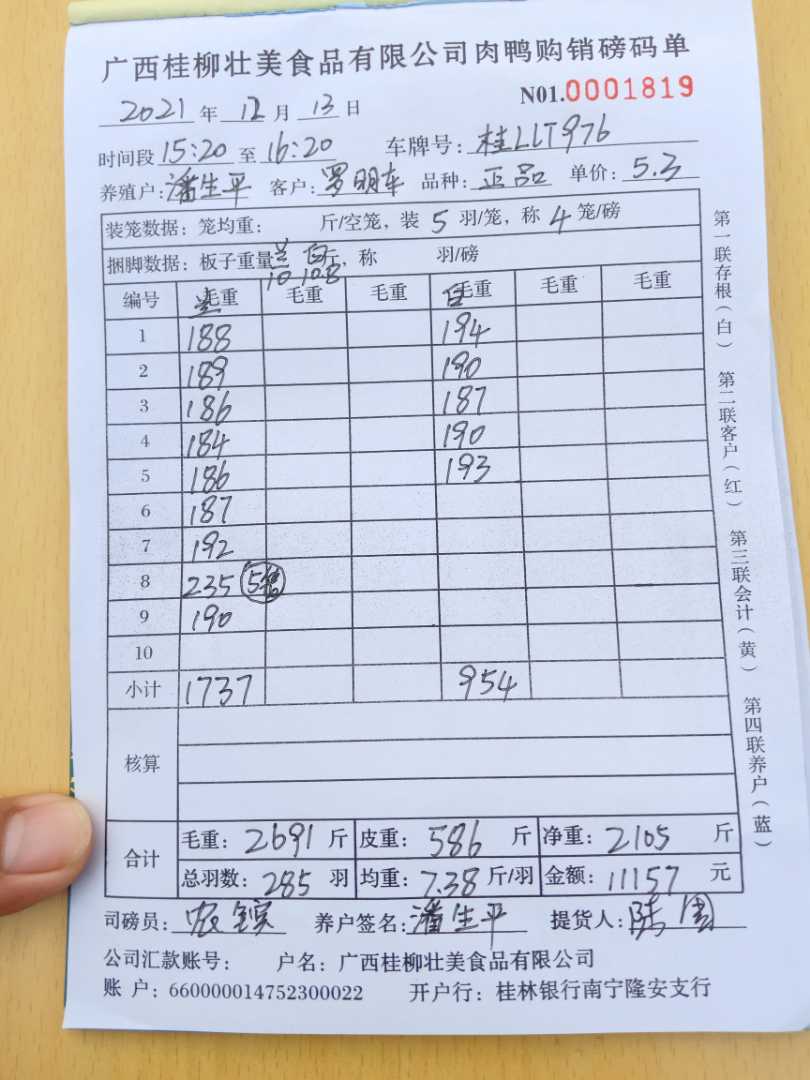 广西桂柳壮美食品有限公司肉鸭购销磅码单
2021 年 12 月 13 日 N01.0001819
时间段 15:20 至 16:20 车牌号: 桂LLT976
养殖户: 潘生平 客户: 罗明车 品种: 正品 单价: 5.3
装笼数据: 笼均重: 斤/空笼, 装 5 羽/笼, 称 4 笼/磅
兰 白
捆脚数据: 板子重量 斤, 称 羽/磅
10 10.8
编号 兰 毛重 毛重 毛重 白 毛重 毛重 毛重
1 188 194
2 189 190
3 186 187
4 184 190
5 186 193
6 187
7 192
8 235 5笼
9 190
10
小计 1737 954
核算
合计 毛重: 2691 斤 皮重: 586 斤 净重: 2105 斤
总羽数: 285 羽 均重: 7.38 斤/羽 金额: 11157 元
司磅员: 养户签名: 潘生平 提货人:
公司汇款账号: 户名: 广西桂柳壮美食品有限公司
账 户: 660000014752300022 开户行: 桂林银行南宁隆安支行
第一联存根(白) 第二联客户(红) 第三联会计(黄) 第四联养户(蓝)